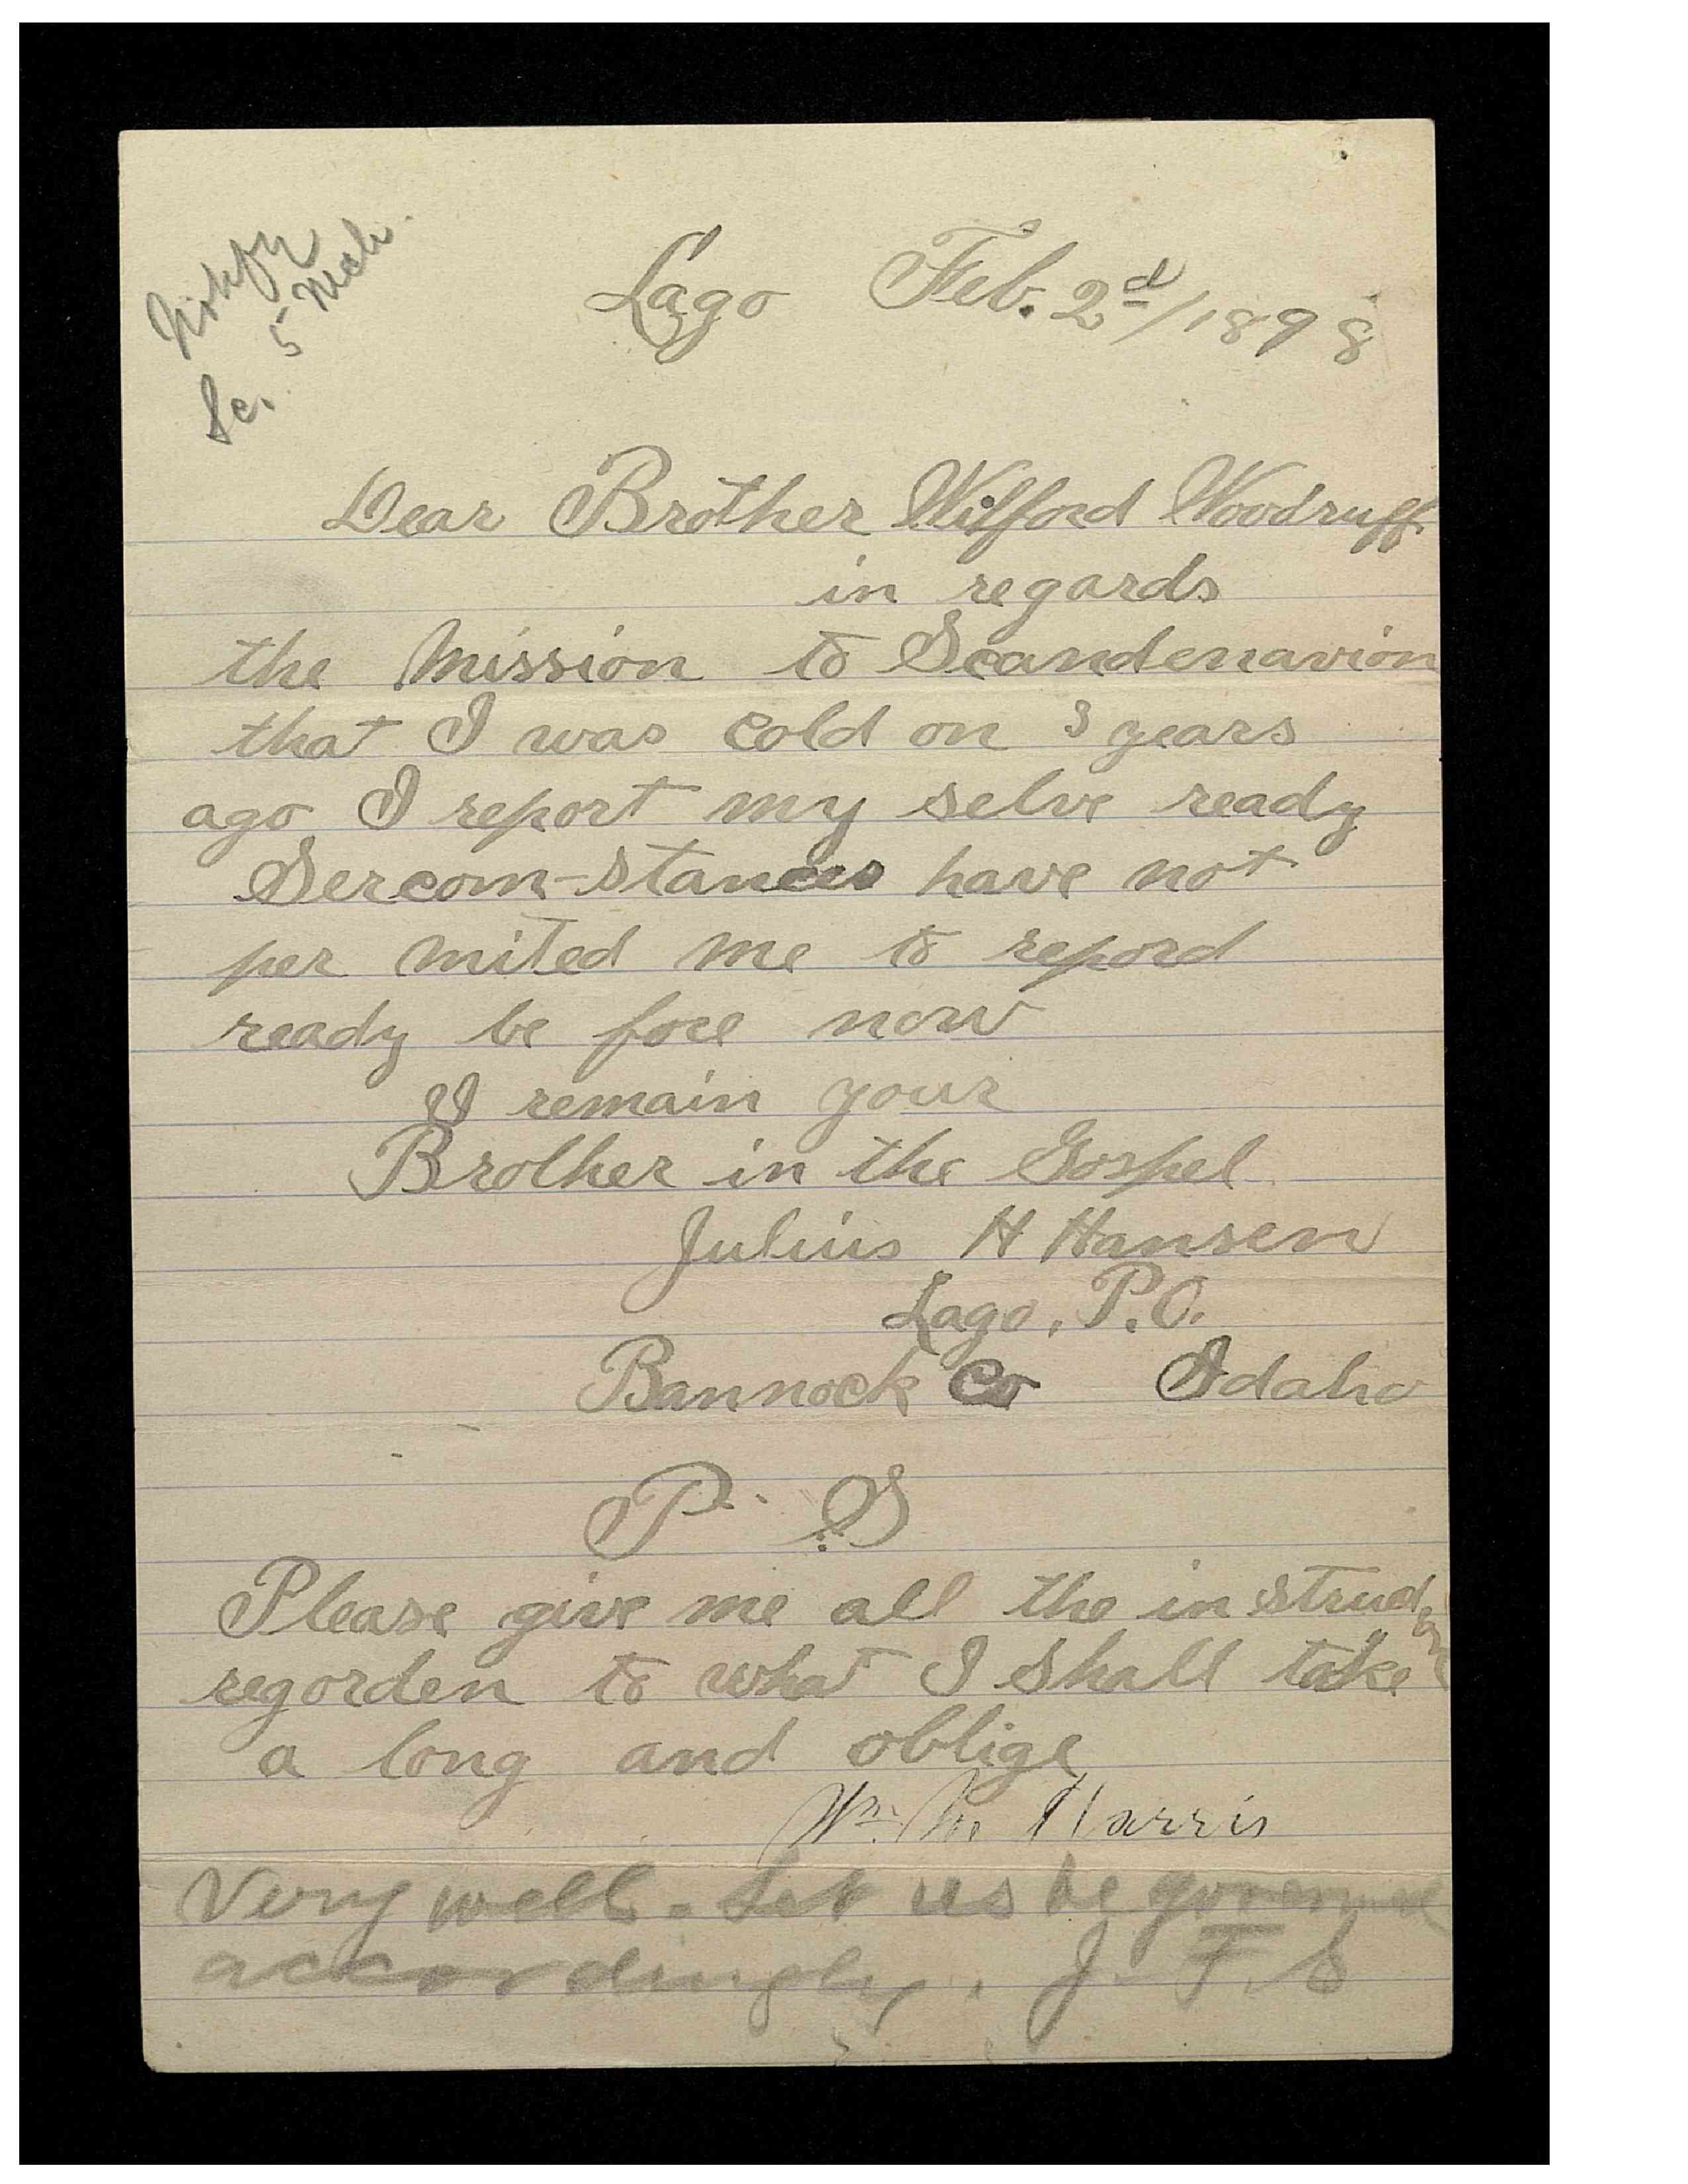 Notify
5 Mch.
Sc.
Lago Feb. 2d/1898
Dear Brother Wilford Woodruff
in regards
the Mission to Scandenavion
that I was cold on 3 years
ago I report my selve ready
Sercom-stances have not
per mited me to repord
ready be fore now
I remain your
Brother in the Gospel
Julius H Hansen
Lago, P.O.
Bannock Co Idaho
P. S
Please give me all the in
regorden to what I shall take
a long and oblige
Wm. M Harris
Very well - Let us be governed
accordingly. J. F. S